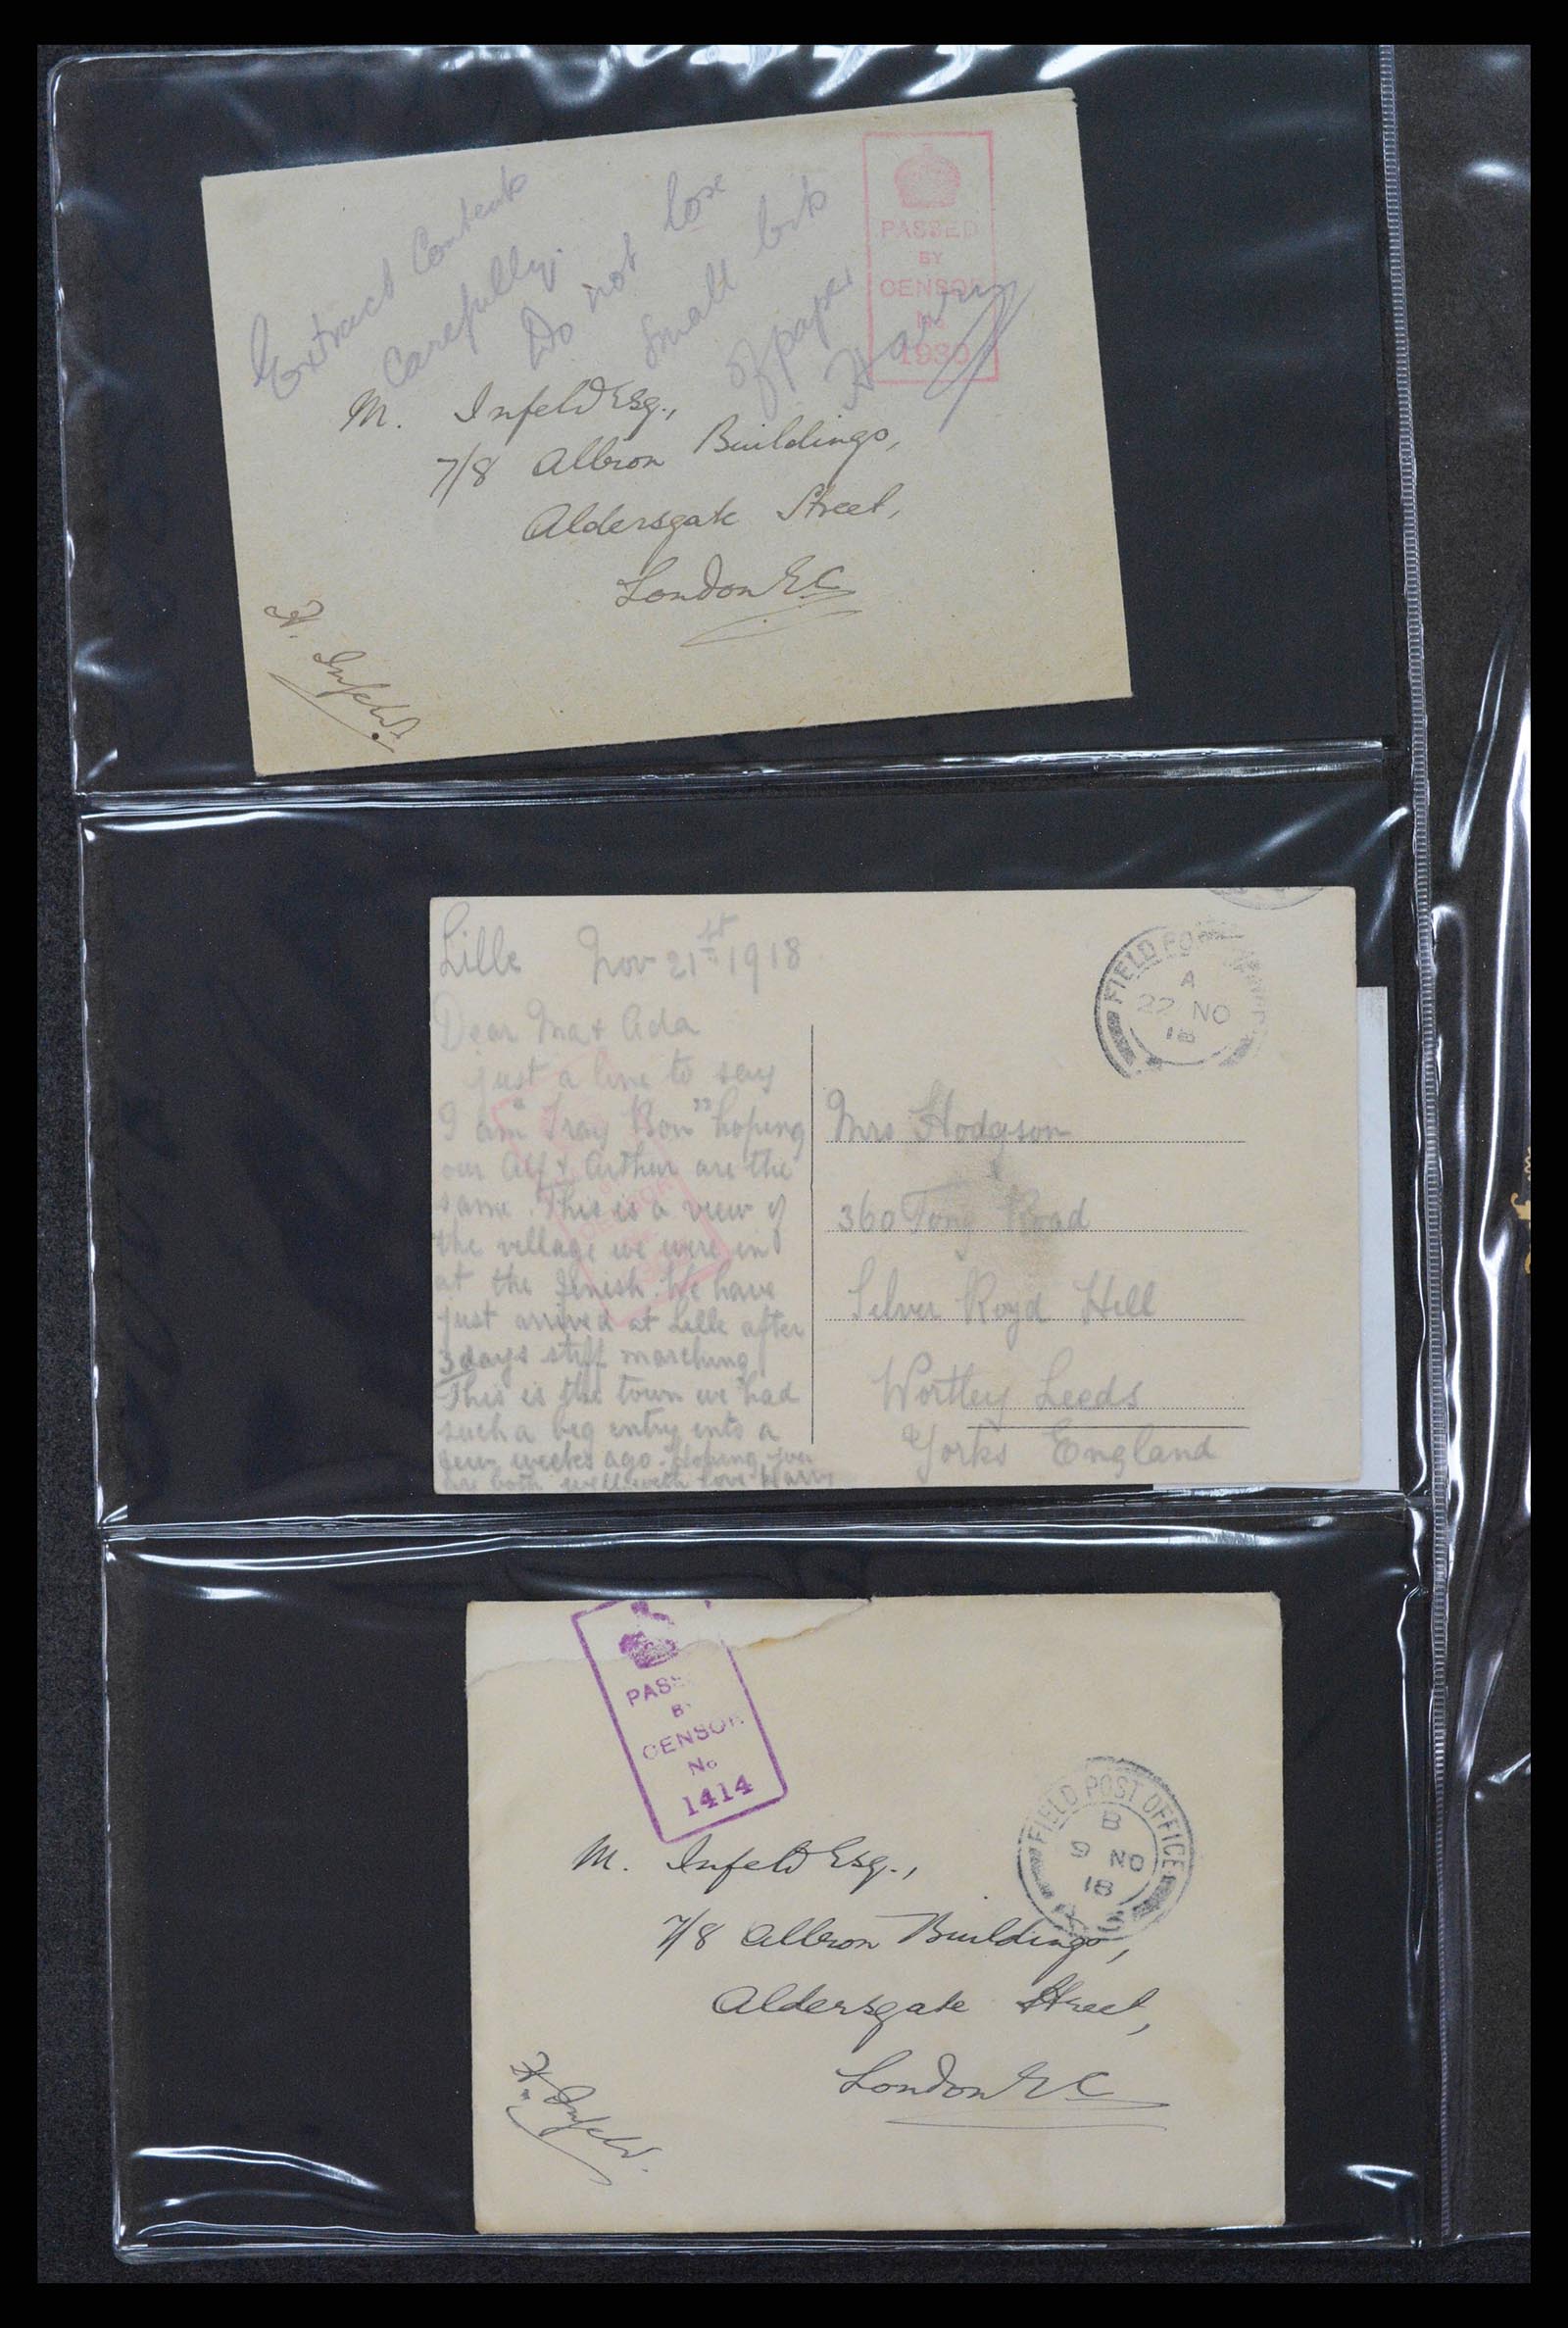 Extract Contents
Carefully.
Do not lose
small bits
of paper
Harry
PASSED
BY
CENSOR
No
1930
M. Infeld Esq.,
7/8 Albion Buildings,
Aldersgate Street,
London E.C.
H. Infeld.
Lille Nov 21st 1918
Dear Ma & Ada
just a line to say
I am "Tray Bon" hoping
our Alf & Arthur are the
same. This is a view of
the village we were in
at the finish. We have
just arrived at Lille after
3 days stiff marching
This is the town we had
such a big entry into a
few weeks ago. Hoping you
are both well with love Harry
FIELD POST
A
22 NO
18
Mrs Hodgson
360 Tong Road
Silver Royd Hill
Wortley Leeds
Yorks England
PASS
B
CENSOR
No
1414
FIELD POST OFFICE
B
9 NO
18
M. Infeld Esq.,
7/8 Albion Buildings,
Aldersgate Street,
London E C
H. Infeld.